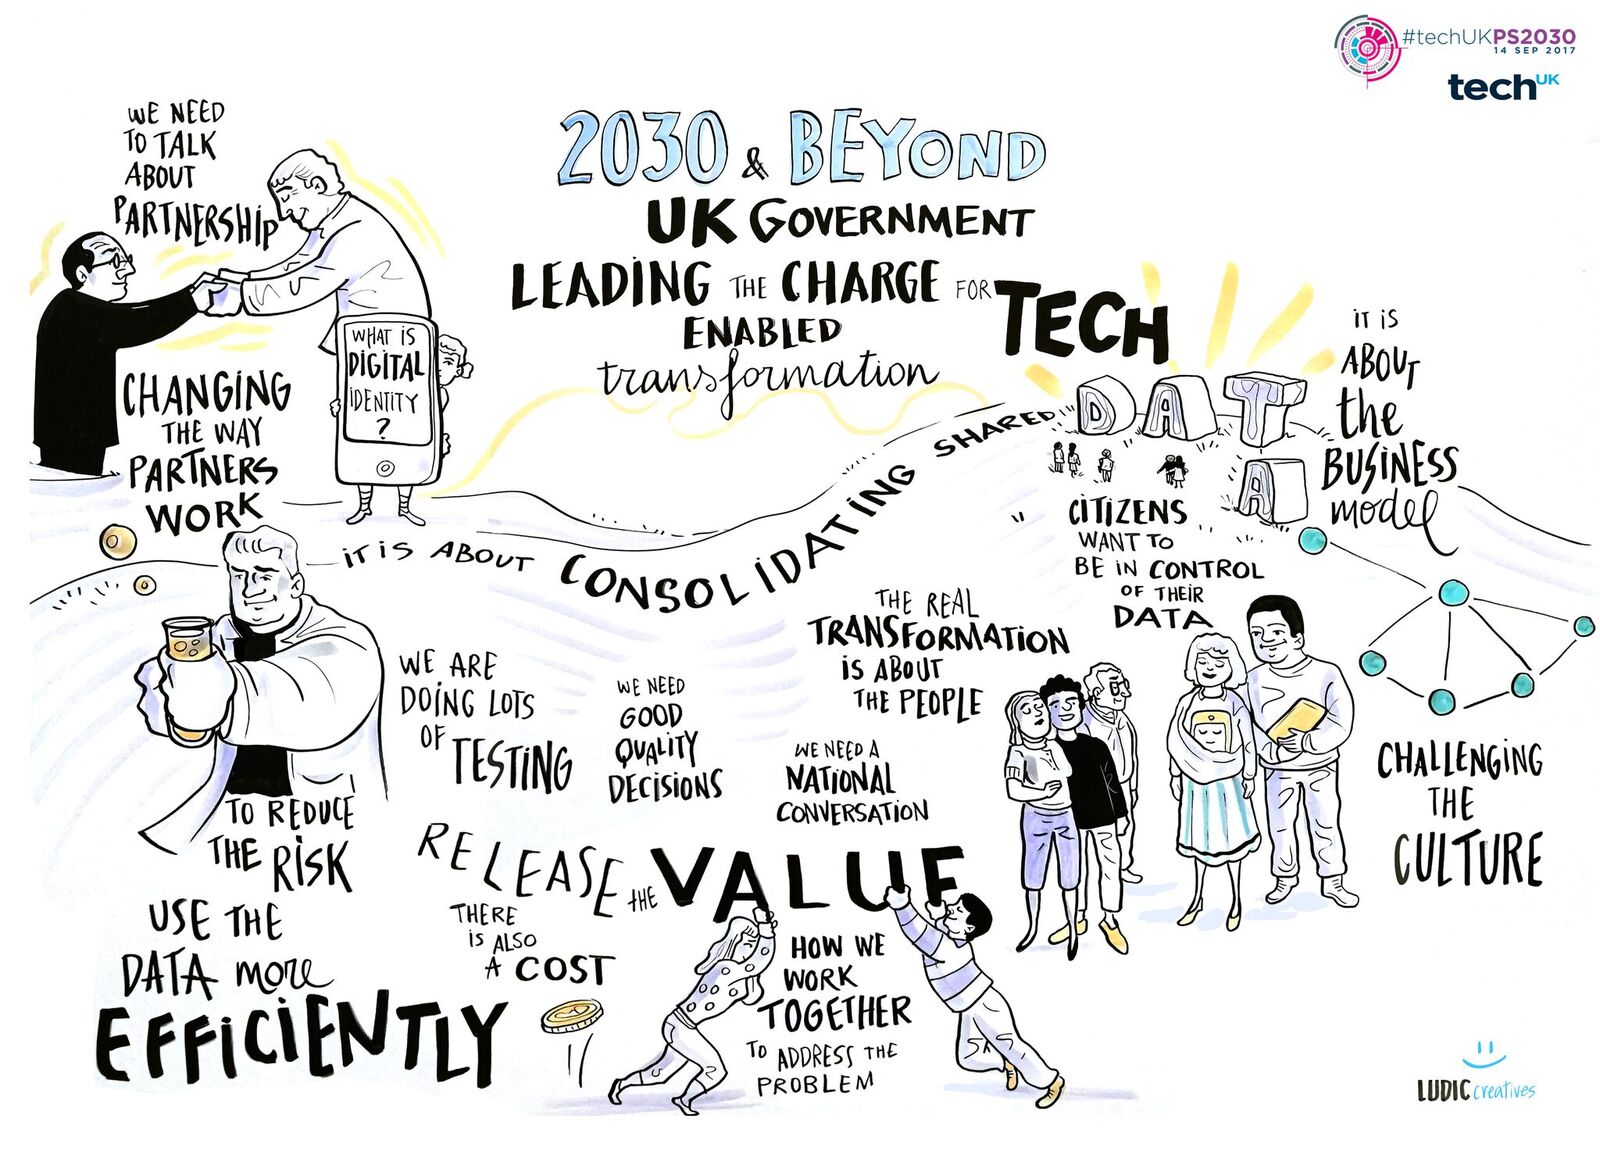 #techUKPS2030
14 SEP 2017
techUK
2030 & BEYOND
UK GOVERNMENT
LEADING THE CHARGE FOR TECH
ENABLED
transformation
WE NEED
TO TALK
ABOUT
PARTNERSHIP
WHAT IS
DIGITAL
IDENTITY
?
CHANGING
THE WAY
PARTNERS
WORK
IT IS ABOUT CONSOLIDATING SHARED
DATA
IT IS
ABOUT
the
BUSINESS
model
CITIZENS
WANT TO
BE IN CONTROL
OF THEIR
DATA
THE REAL
TRANSFORMATION
IS ABOUT
THE PEOPLE
WE ARE
DOING LOTS
OF TESTING
TO REDUCE
THE RISK
WE NEED
GOOD
QUALITY
DECISIONS
WE NEED A
NATIONAL
CONVERSATION
CHALLENGING
THE
CULTURE
RELEASE the VALUE
USE THE
DATA more
EFFICIENTLY
THERE
IS ALSO
A COST
HOW WE
WORK
TOGETHER
TO ADDRESS THE
PROBLEM
LUDIC creatives